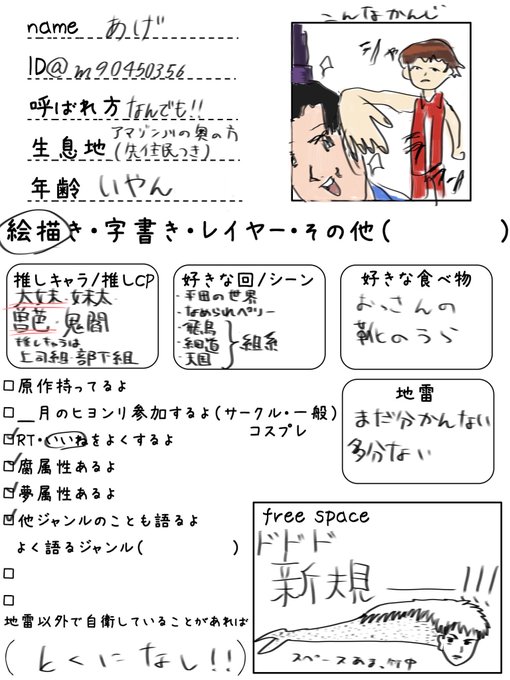 name あげ
こんなかんじ
ID@m90450356
ジャー
呼ばれ方 なんでも!!
生息地 アマゾン川の奥の方
(先住民つき)
年齢 いやん
絵描き・字書き・レイヤー・その他( )
推しキャラ/推しCP
太妹・妹太
曽芭・鬼閻
推しきゃらは
上司組・部下組
好きな回/シーン
・平田の世界
・なめられペリー
・飛鳥
・細道
・天国
組系
好きな食べ物
おっさんの
靴のうら
地雷
まだ分かんない
多分ない
□原作持ってるよ
□__月のヒヨンリ参加するよ(サークル・一般)
コスプレ
RT・いいねをよくするよ
腐属性あるよ
夢属性あるよ
他ジャンルのことも語るよ
よく語るジャンル( )
□
□
地雷以外で自衛していることがあれば
(とくになし!!)
free space
ドドド
新規____!!!
スペースある、竹中